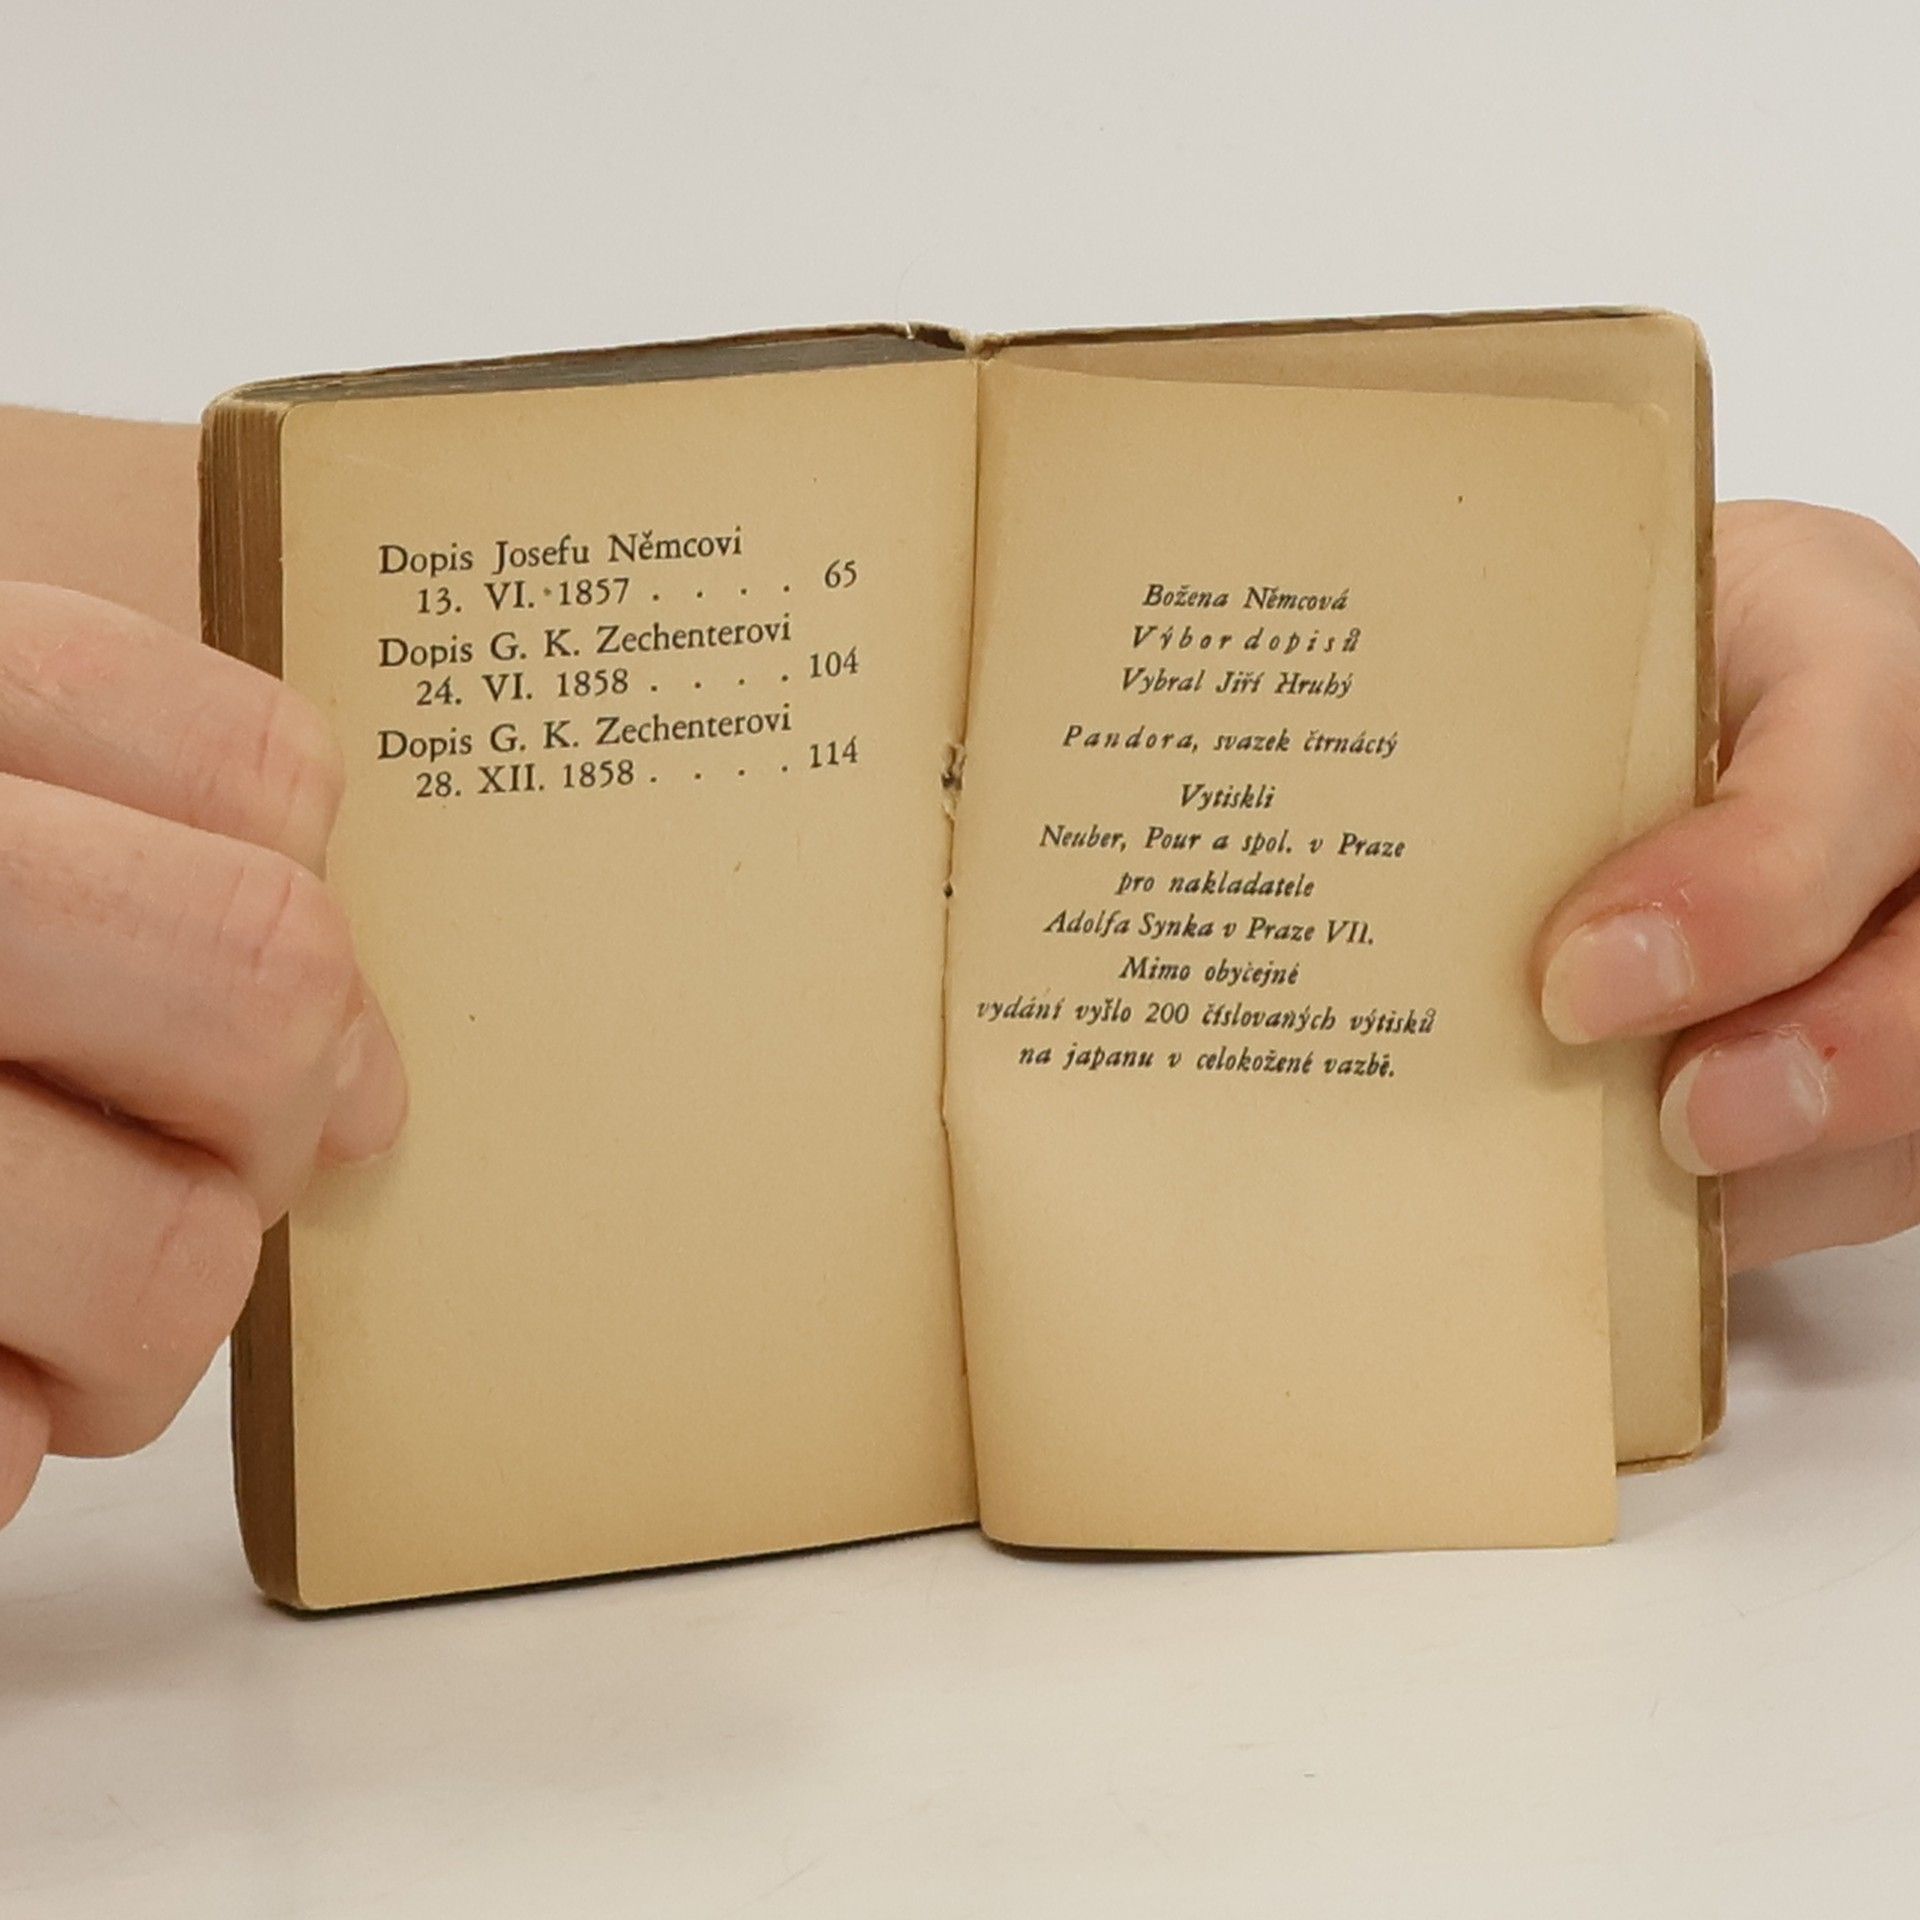 Dopis Josefu Němcovi
13. VI. 1857 . . . . 65
Dopis G. K. Zechenterovi
24. VI. 1858 . . . . 104
Dopis G. K. Zechenterovi
28. XII. 1858 . . . . 114
Božena Němcová
Výbor dopisů
Vybral Jiří Hrubý
Pandora, svazek čtrnáctý
Vytiskli
Neuber, Pour a spol. v Praze
pro nakladatele
Adolfa Synka v Praze VII.
Mimo obyčejné
vydání vyšlo 200 číslovaných výtisků
na japanu v celokožené vazbě.